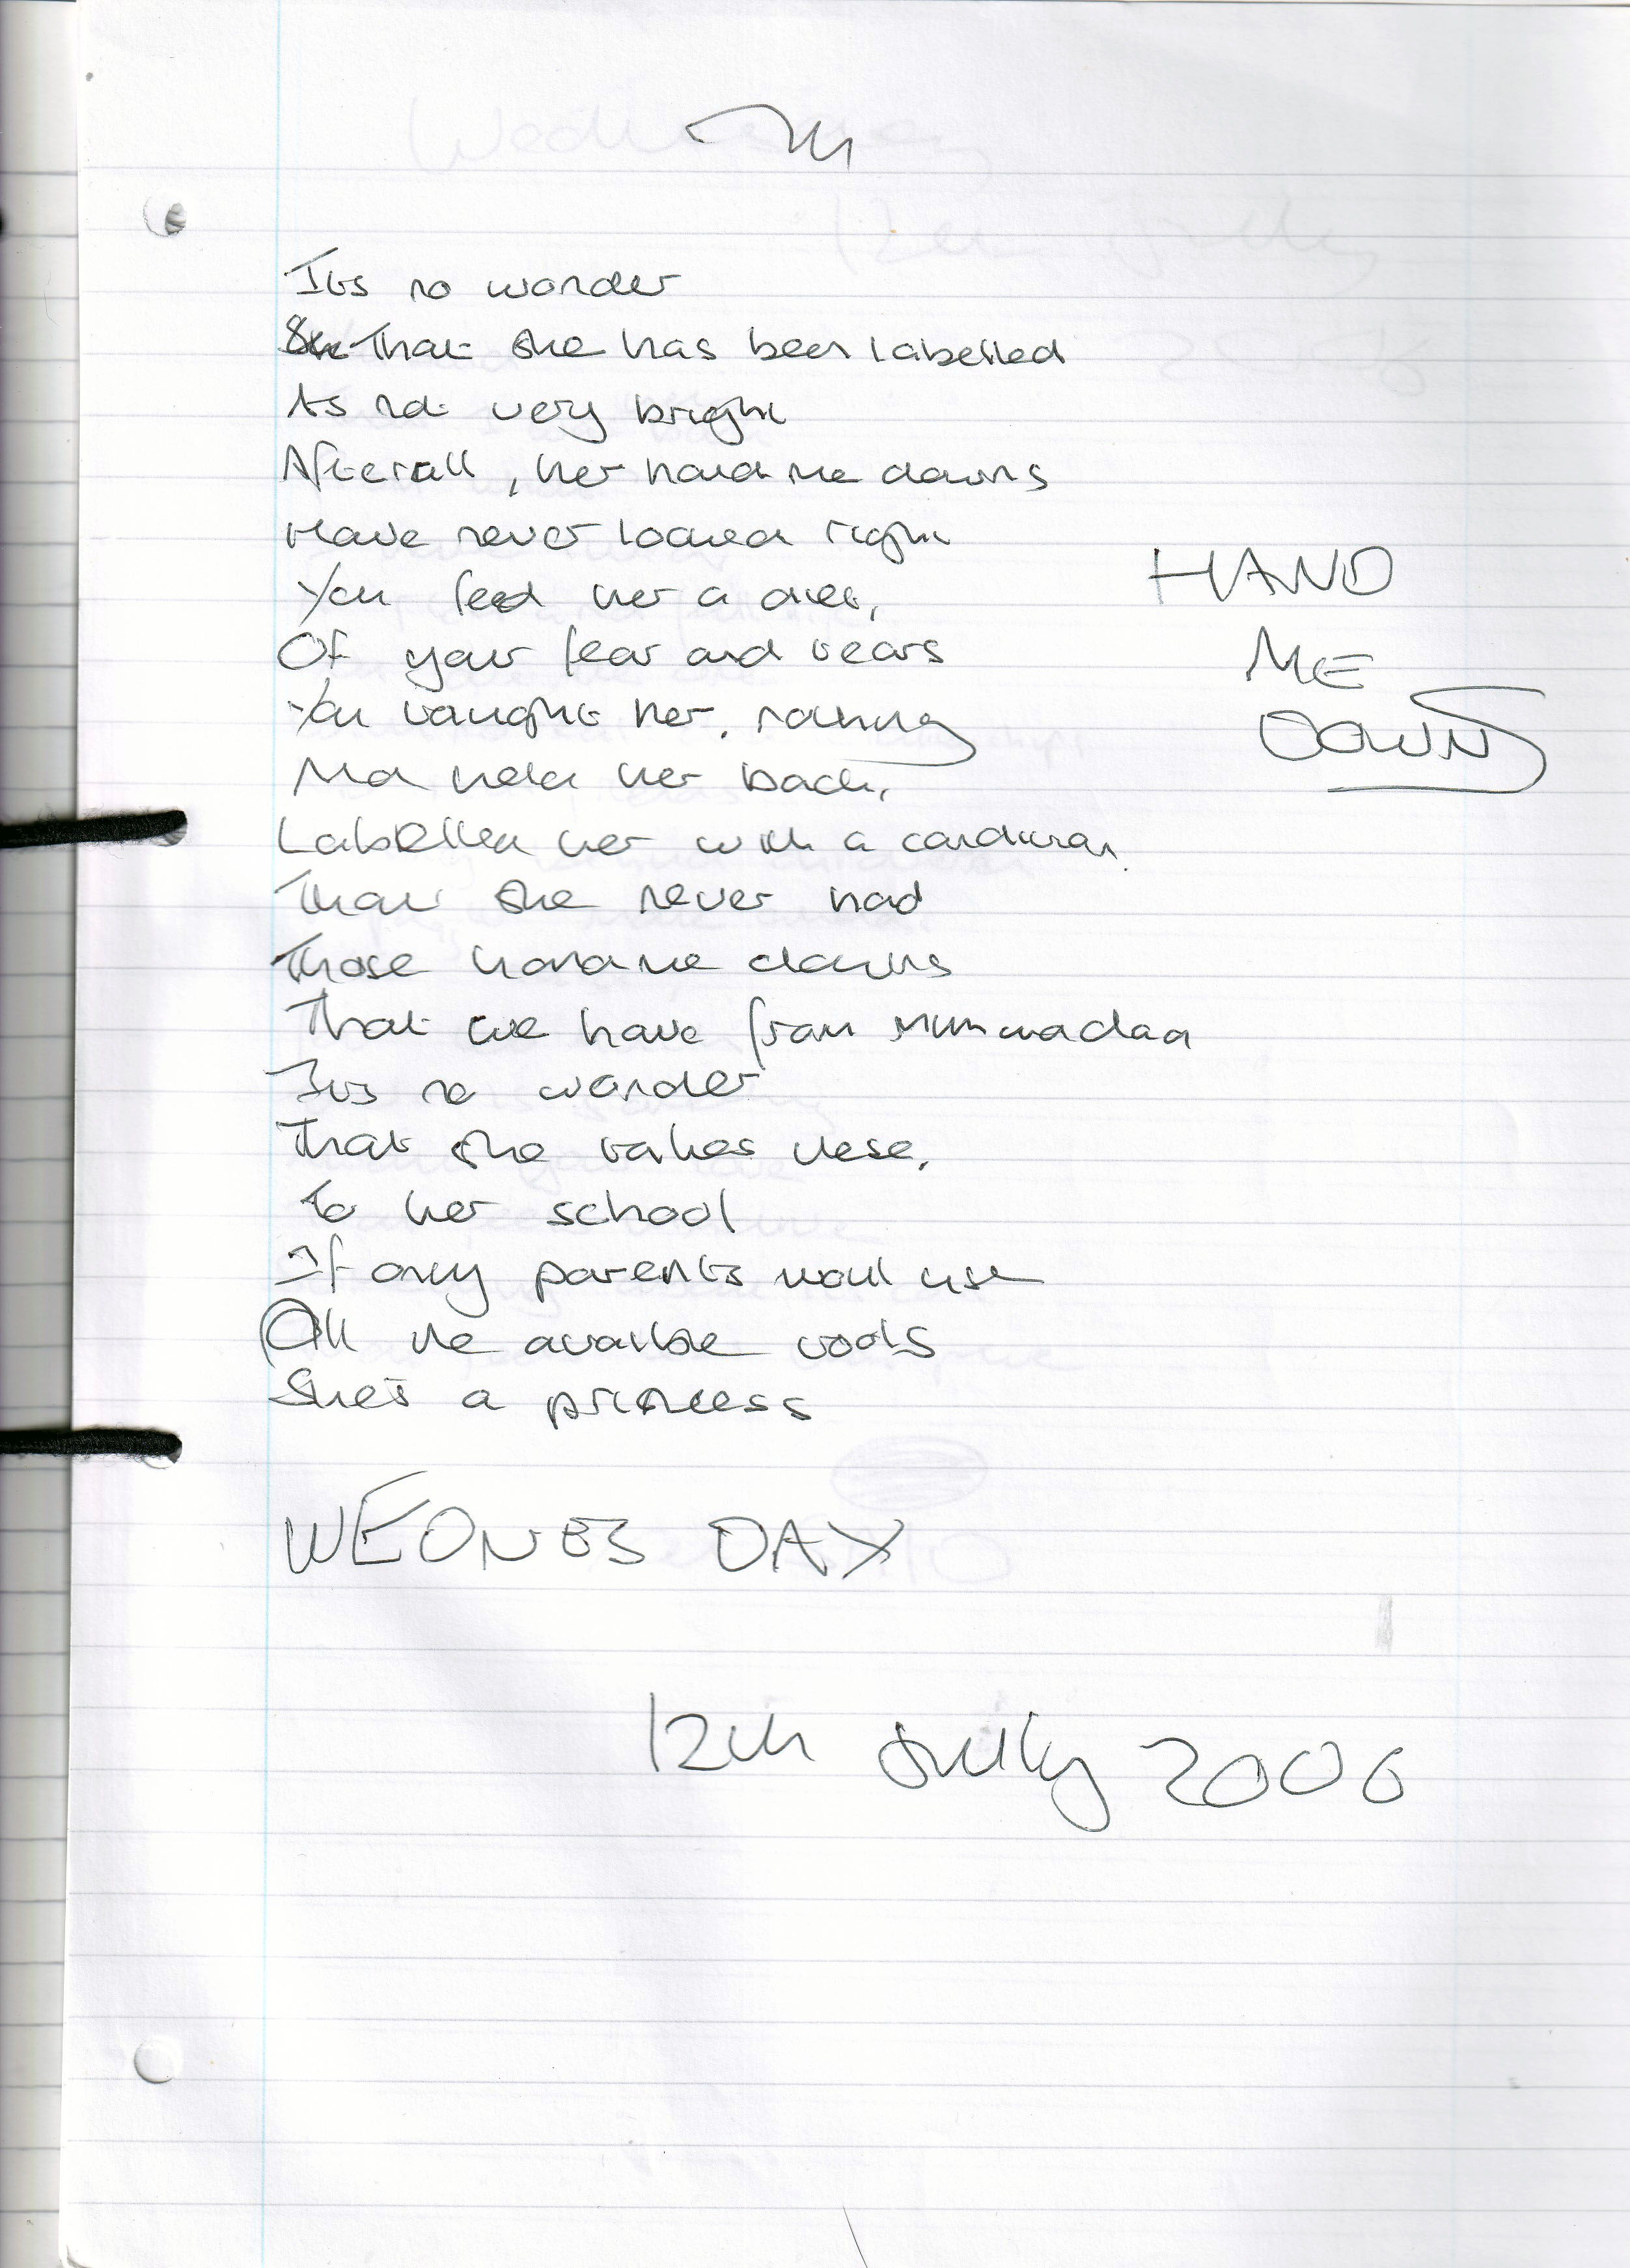 Its no wonder
That she has been labelled
As not very bright
Afterall, her hand me downs
Have never looked right
You feed her a diet,
Of your fear and tears
You taught her, nothing
held her back,
Labelled her with a condition
That she never had
Those hand me downs
That we have from Mum and dad
Its no wonder
That she takes these,
To her school
If only parents would use
All the availble tools
She's a princess
HAND
ME
DOWNS
WEDNES DAY
12th July 2006